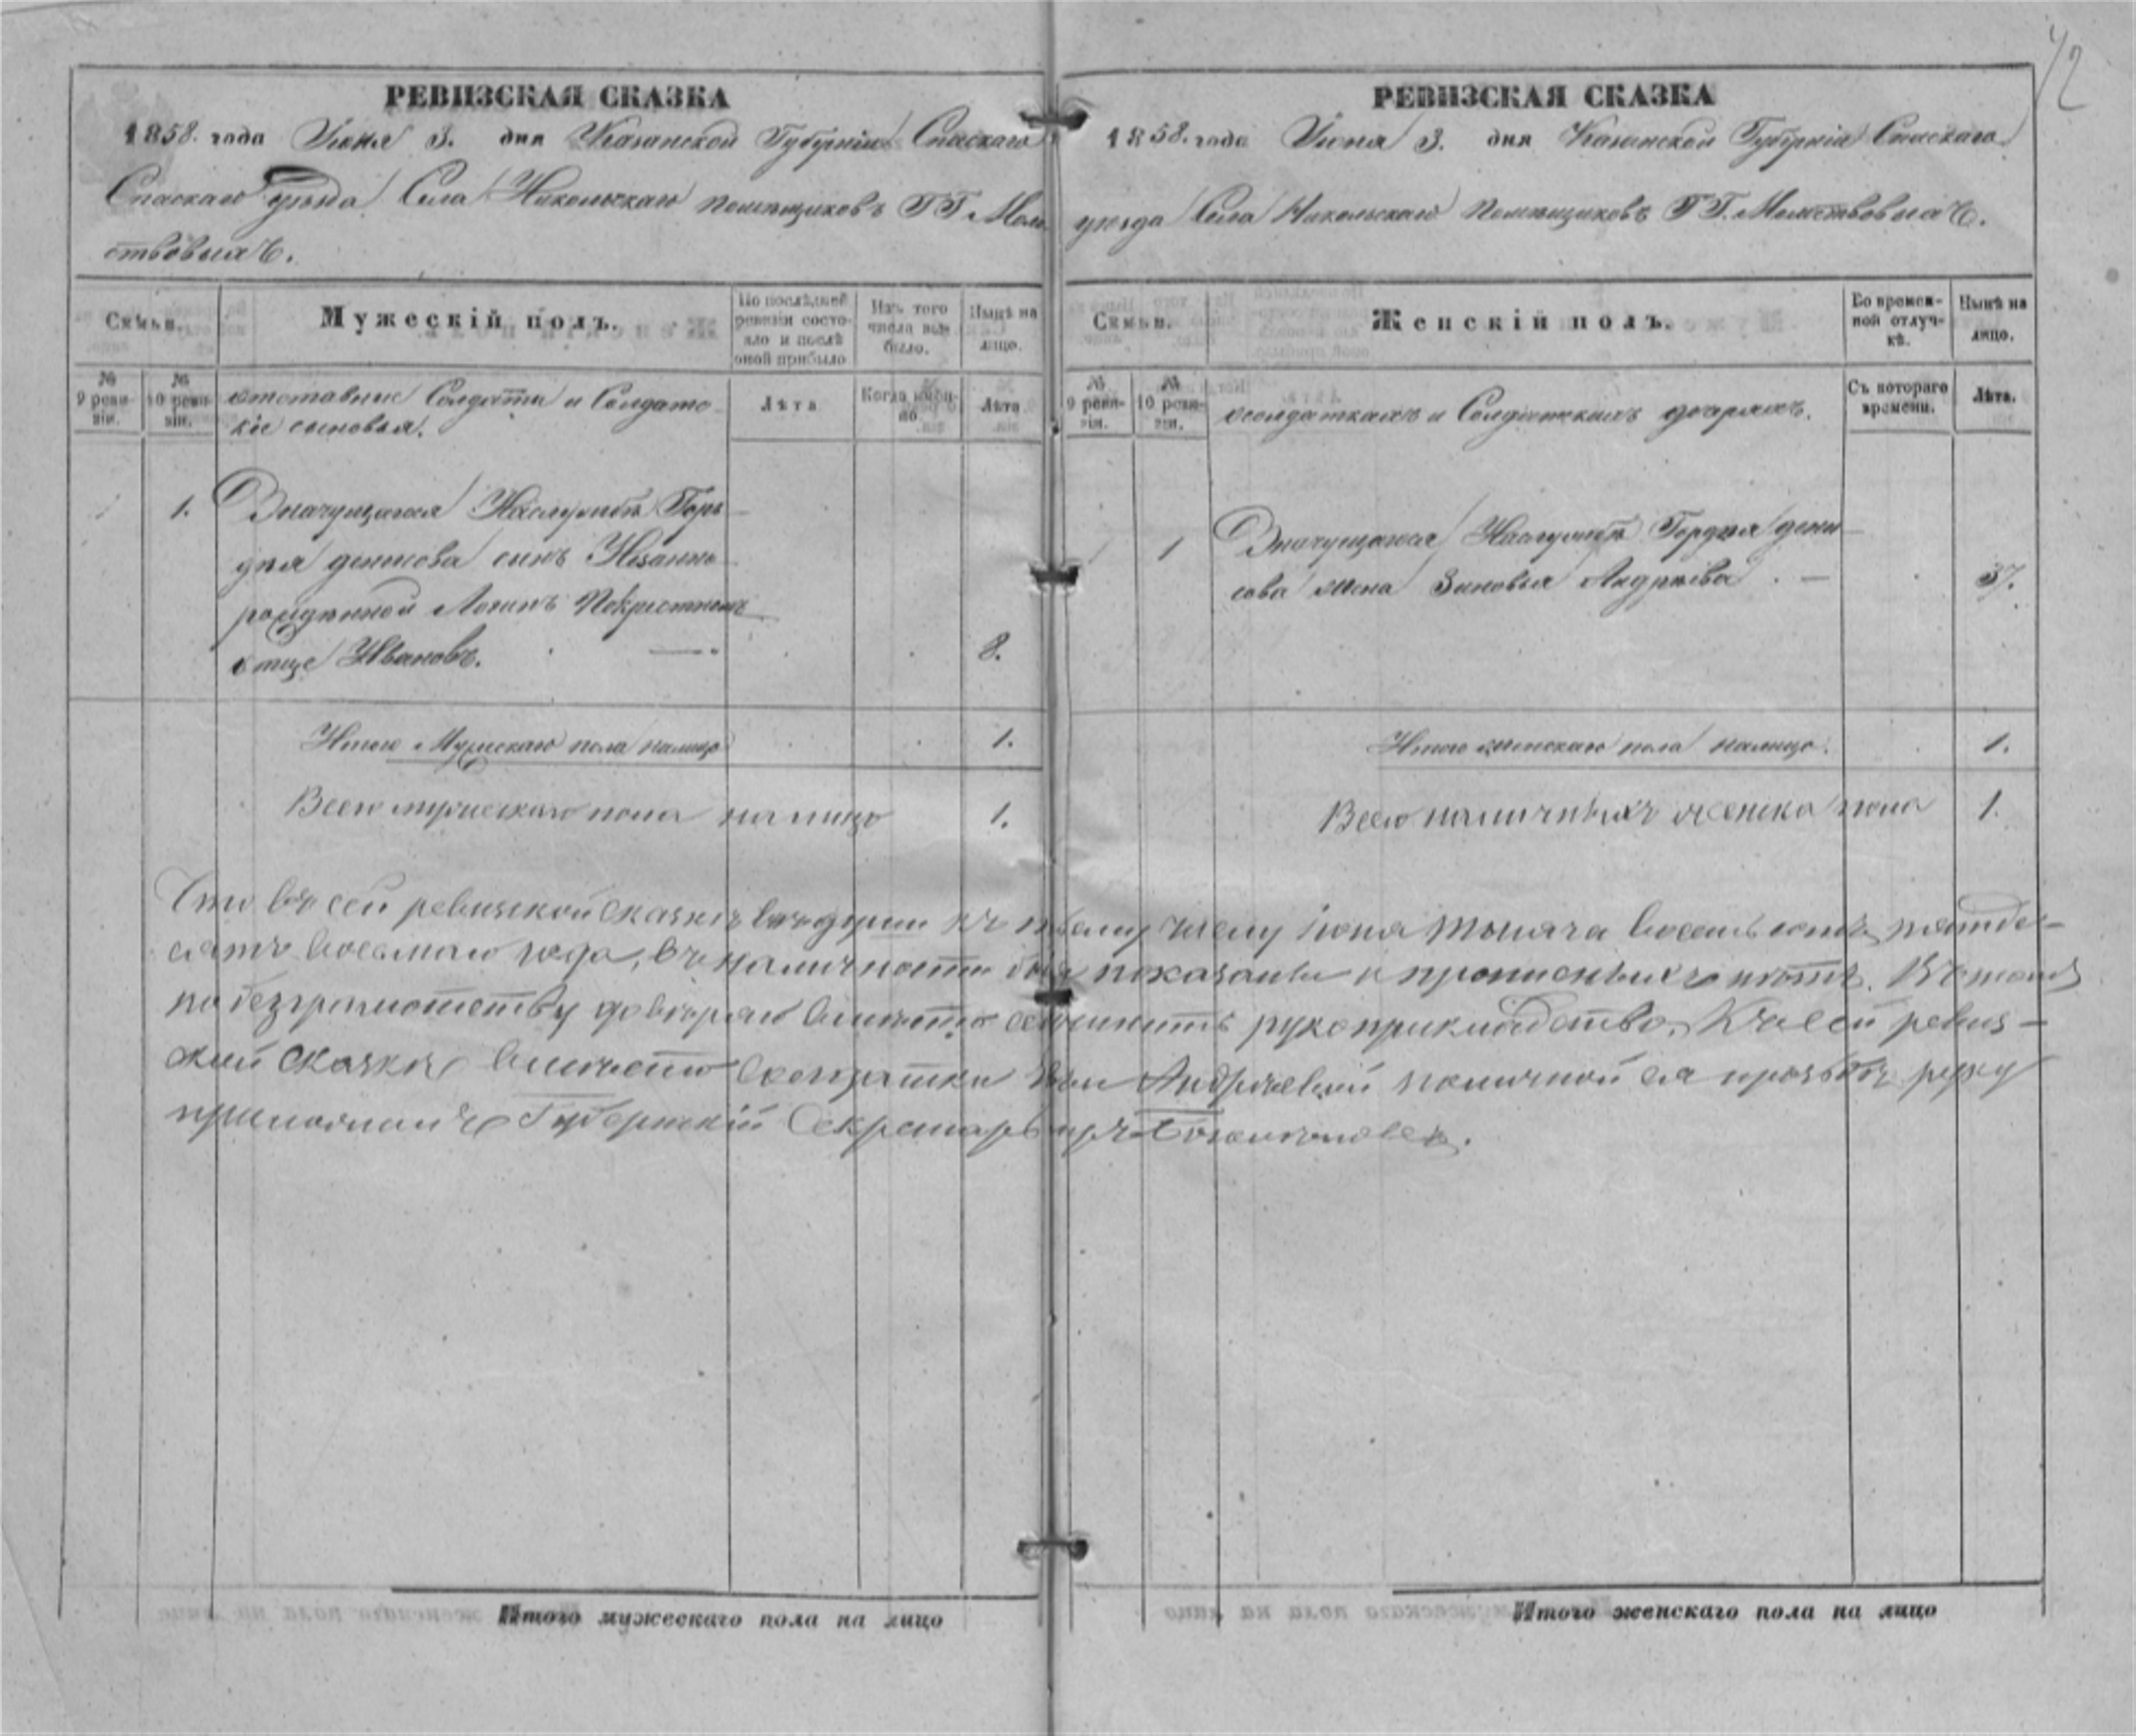 42
РЕВИЗСКАЯ СКАЗКА
1858. года Июня 3. дня Казанской Губерніи Спаскаго
Спаскаго уезда Села Никольскаго помѣщиковъ ГГ Мол
ствовыхъ.
Семьи.
Мужескій полъ.
По послѣдней ревизіи состояло и послѣ оной прибыло
Изъ того числа выбыло.
Нынѣ на лицо.
№ 9 ревизіи.
№ 10 ревизіи.
отставные Солдаты и Солдатс
кіе сыновья.
Лѣта
Когда именно.
Лѣта
1. Значущагося Гор
дѣя сынъ Незанно
рожденной Логинъ
отце Ивановъ. 8.
Итого Мужескаго пола налицо 1.
Всего мужескаго пола на лицо 1.
РЕВИЗСКАЯ СКАЗКА
1858. года Июня 3. дня Казанской Губерніи Спаскаго
уезда Села Никольскаго помѣщиковъ ГГ. Молствовыхъ.
Семьи.
Женскій полъ.
Во временной отлучкѣ.
Нынѣ на лицо.
№ 9 ревизіи.
№ 10 ревизіи.
о солдаткахъ и Солдатскихъ дочеряхъ.
Съ котораго времени.
Лѣта.
1 Значущагося Гордѣя дени
сова жена Зиновья Андрѣева. 37.
Итого женскаго пола налицо. 1.
Всего наличныхъ женска пола 1.
Что въ сей ревизской сказкѣ всѣ души къ числу іюня тысяча восемьсотъ пятьде-
сятъ восьмаго года, въ наличности показаны и прописныхъ нѣтъ. Въ томъ
по безграмотству довѣряю вместо рукоприкладство. Къ сей ревиз-
ской сказкѣ вместо солдатки Андрѣевой по личной ея прозьбѣ руку
приложилъ Губернскій Секретарь
Итого мужескаго пола на лицо
Итого женскаго пола на лицо